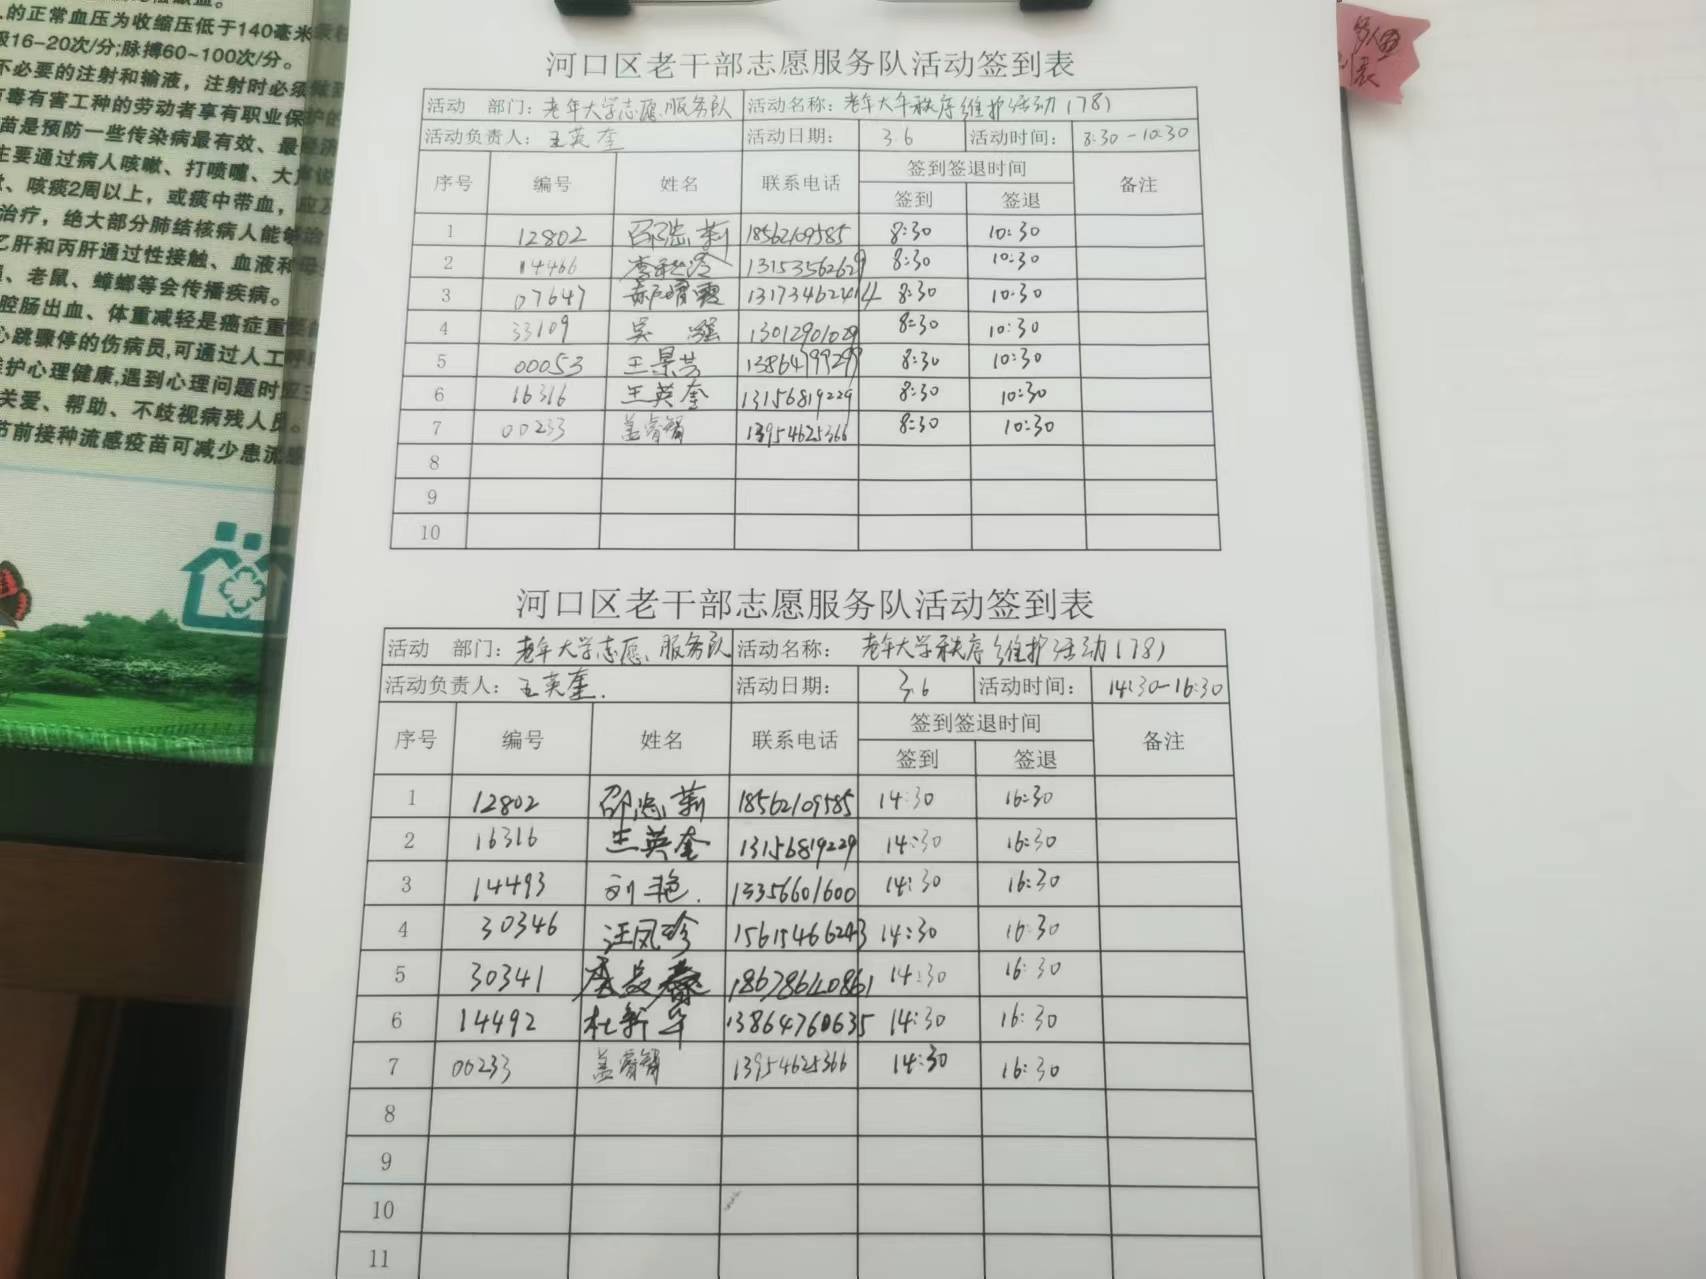 的正常血压为收缩压低于140毫米汞柱
吸16-20次/分;脉搏60~100次/分。
不必要的注射和输液，注射时必须做到
有毒有害工种的劳动者享有职业保护的
苗是预防一些传染病最有效、最经济
主要通过病人咳嗽、打喷嚏、大声说
、咳痰2周以上，或痰中带血，应及
治疗，绝大部分肺结核病人能够治
乙肝和丙肝通过性接触、血液和母
、老鼠、蟑螂等会传播疾病。
腔肠出血、体重减轻是癌症重要的
心跳骤停的伤病员,可通过人工呼
维护心理健康,遇到心理问题时应主
关爱、帮助、不歧视病残人员。
节前接种流感疫苗可减少患流感
河口区老干部志愿服务队活动签到表
活动 部门: 老年大学志愿服务队 活动名称: 老年大学秩序维护活动(78)
活动负责人: 王英奎 活动日期: 3.6 活动时间: 8:30-10:30
序号 编号 姓名 联系电话 签到签退时间 备注
签到 签退
1 12802 邵志莉 18562109585 8:30 10:30
2 14466 13153562629 8:30 10:30
3 07647 13173462414 8:30 10:30
4 33109 吴 13012901029 8:30 10:30
5 00053 王景芸 13864799297 8:30 10:30
6 16316 王英奎 13156819229 8:30 10:30
7 00233 盖 13954625366 8:30 10:30
8
9
10
河口区老干部志愿服务队活动签到表
活动 部门: 老年大学志愿服务队 活动名称: 老年大学秩序维护活动(78)
活动负责人: 王英奎. 活动日期: 3.6 活动时间: 14:30-16:30
序号 编号 姓名 联系电话 签到签退时间 备注
签到 签退
1 12802 邵志莉 18562109585 14:30 16:30
2 16316 王英奎 13156819229 14:30 16:30
3 14493 刘艳. 13356601600 14:30 16:30
4 30346 汪凤珍 15615466243 14:30 16:30
5 30341 18678640861 14:30 16:30
6 14492 杜新华 13864760635 14:30 16:30
7 00233 盖 13954625366 14:30 16:30
8
9
10
11